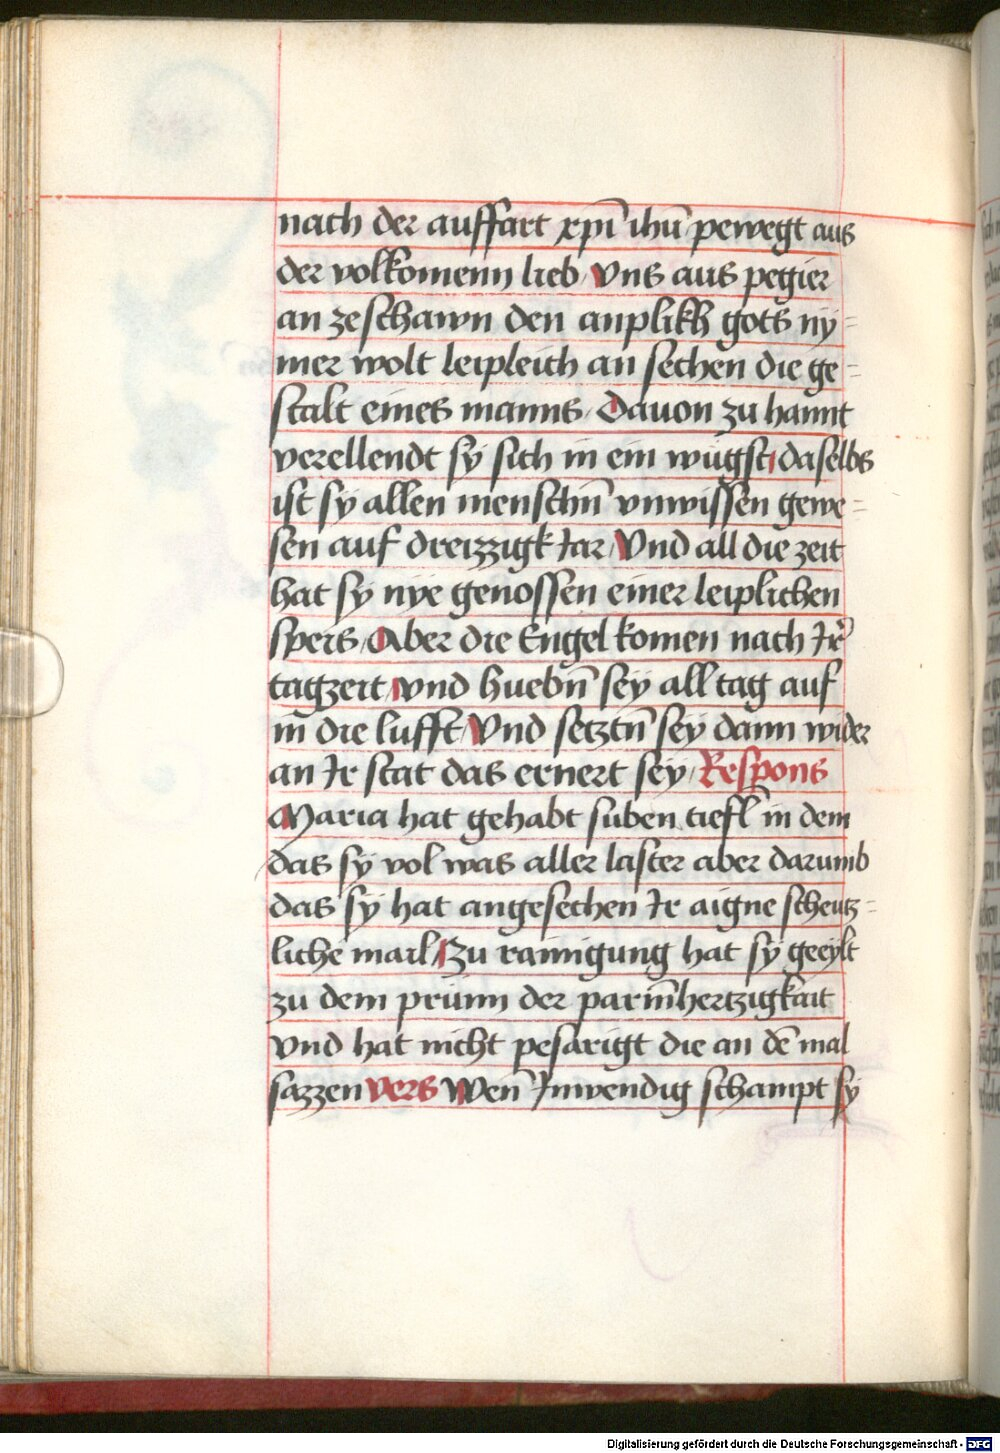 nach der auffart xpī ihū pewegt aus
der volkomenn lieb Vns aus pegier
an zeschawn den anplikh gots ny=
mer wolt leipleich an sechen die ge=
stalt eines manns Dauon zu hannt
verellendt sÿ sich in ein wugst daselbs
ist sÿ allen menschn̄ vnwissen gewe=
sen auf dreizzigk Iar Vnd all die zeit
hat sÿ nÿe genossen einer leiplichen
speis Aber die Engel komen nach Ir̄
tagzeit vnd huebn̄ seÿ all tag auf
in̄ die lufft Vnd setztn̄ seÿ dann wider
an Ir stat das ernert seÿ Respons
Maria hat gehabt suben tiefl in dem
das sÿ vol was aller laster aber darumb
das sÿ hat angesechen Ir aigne scheutz=
liche mail Zu rainigung hat sÿ geeÿlt
zu dem prunn der parm̄hertzigkait
vnd hat nicht pesarigt die an dē mal
sazzen vers Wen Inwendig schampt sÿ
Digitalisierung gefördert durch die Deutsche Forschungsgemeinschaft - DFG